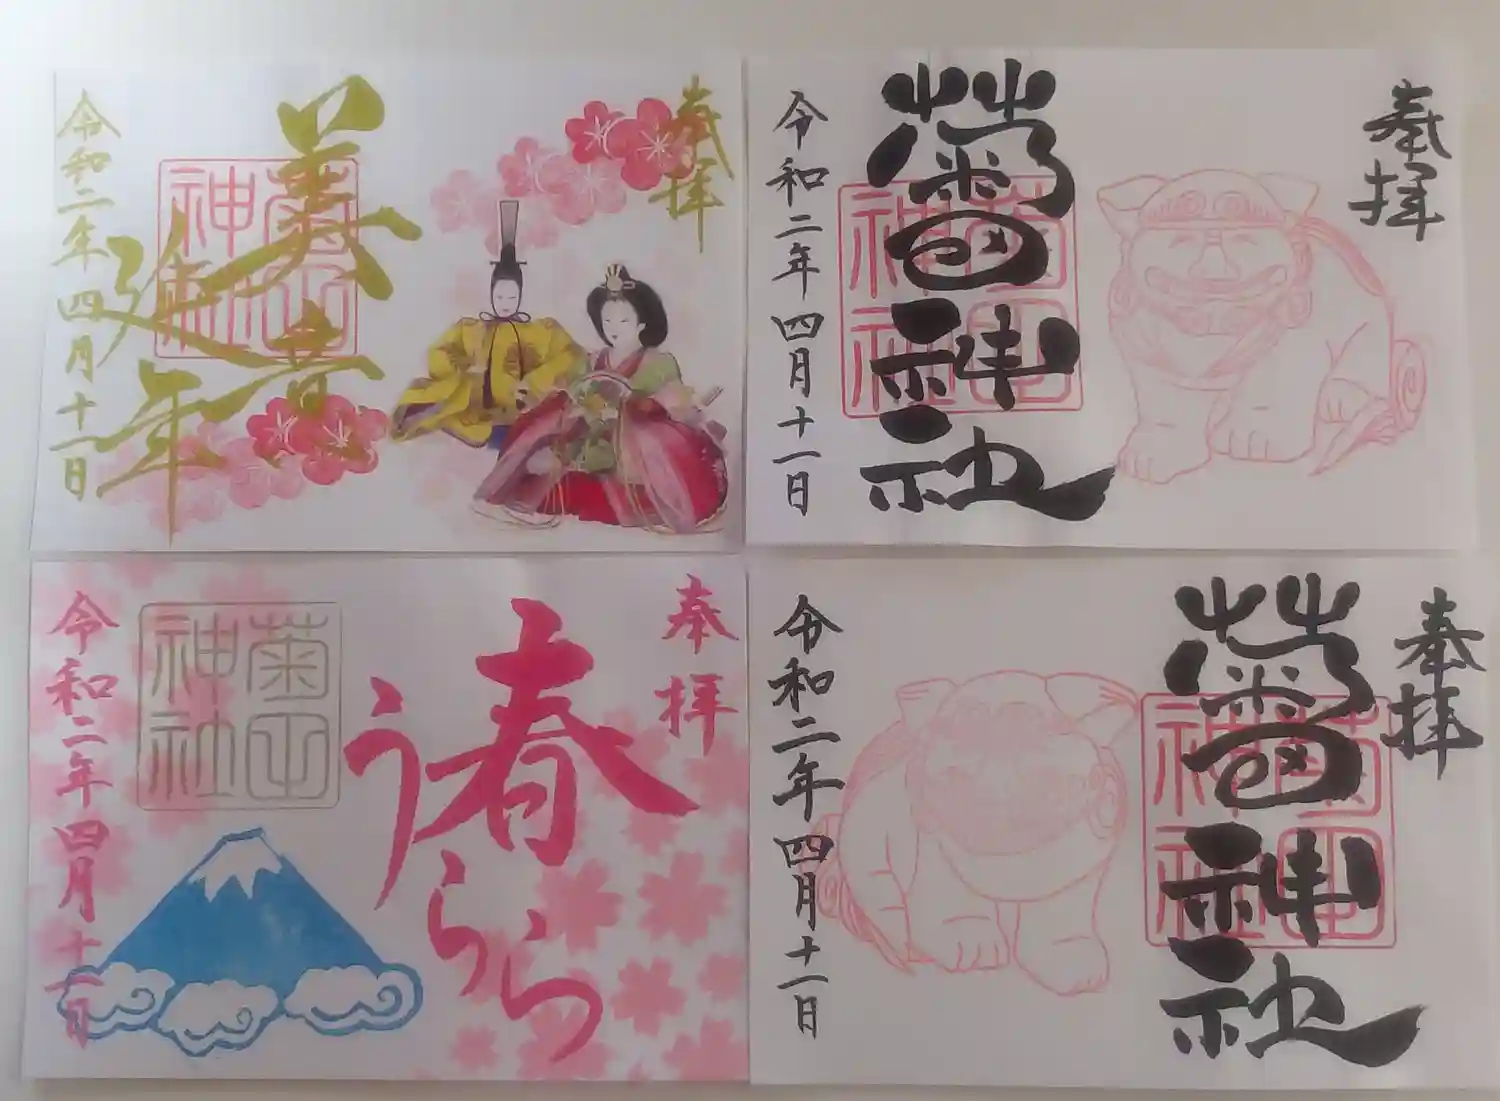 奉拝
美意
延年
菊田
神社
令和二年四月十一日
奉拝
菊田神社
菊田
神社
令和二年四月十一日
奉拝
春うらら
菊田
神社
令和二年四月十一日
奉拝
菊田神社
菊田
神社
令和二年四月十一日